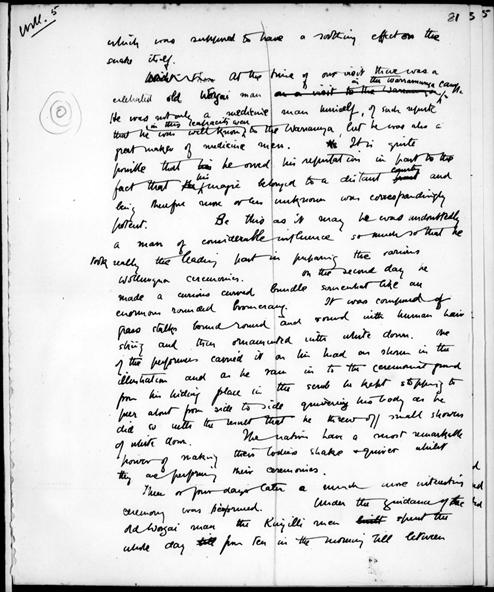 WM. 5
21 3 5
which was supposed to have a soothing effect on the
snake itself.
At the time of our visit there was a
in the Warramunga camp.
celebrated old Worgai man on a visit to the Warramunga
He was not only a medicine man himself, of such repute
in this capacity was
that he was well known to the Warramunga but he was also a
great maker of medicine men. It is quite
possible that his he owed his reputation in part to the
his country
fact that the magic belonged to a distant and
being therefore more or less unknown was correspondingly
potent. Be this as it may he was undoubtedly
a man of considerable influence so much so that he
took really the leading part in preparing the various
Wollunqua ceremonies. On the second day he
made a curious curved bundle somewhat like an
enormous rounded boomerang. It was composed of
grass stalks bound round and round with human hair
string and then ornamented with white down. One
of the performers carried it on his head as shown in the
illustration and as he ran in to the ceremonial ground
from his hiding place in the scrub he kept stopping to
peer about from side to side quivering his body as he
did so with the result that he threw off small showers
of white down. The natives have a most remarkable
power of making their bodies shake & quiver whilst
they are performing their ceremonies.
Three or four days later a much more interesting
ceremony was performed. Under the guidance of the
old Worgai man the Kingilli men spent the
whole day till from ten in the morning till between